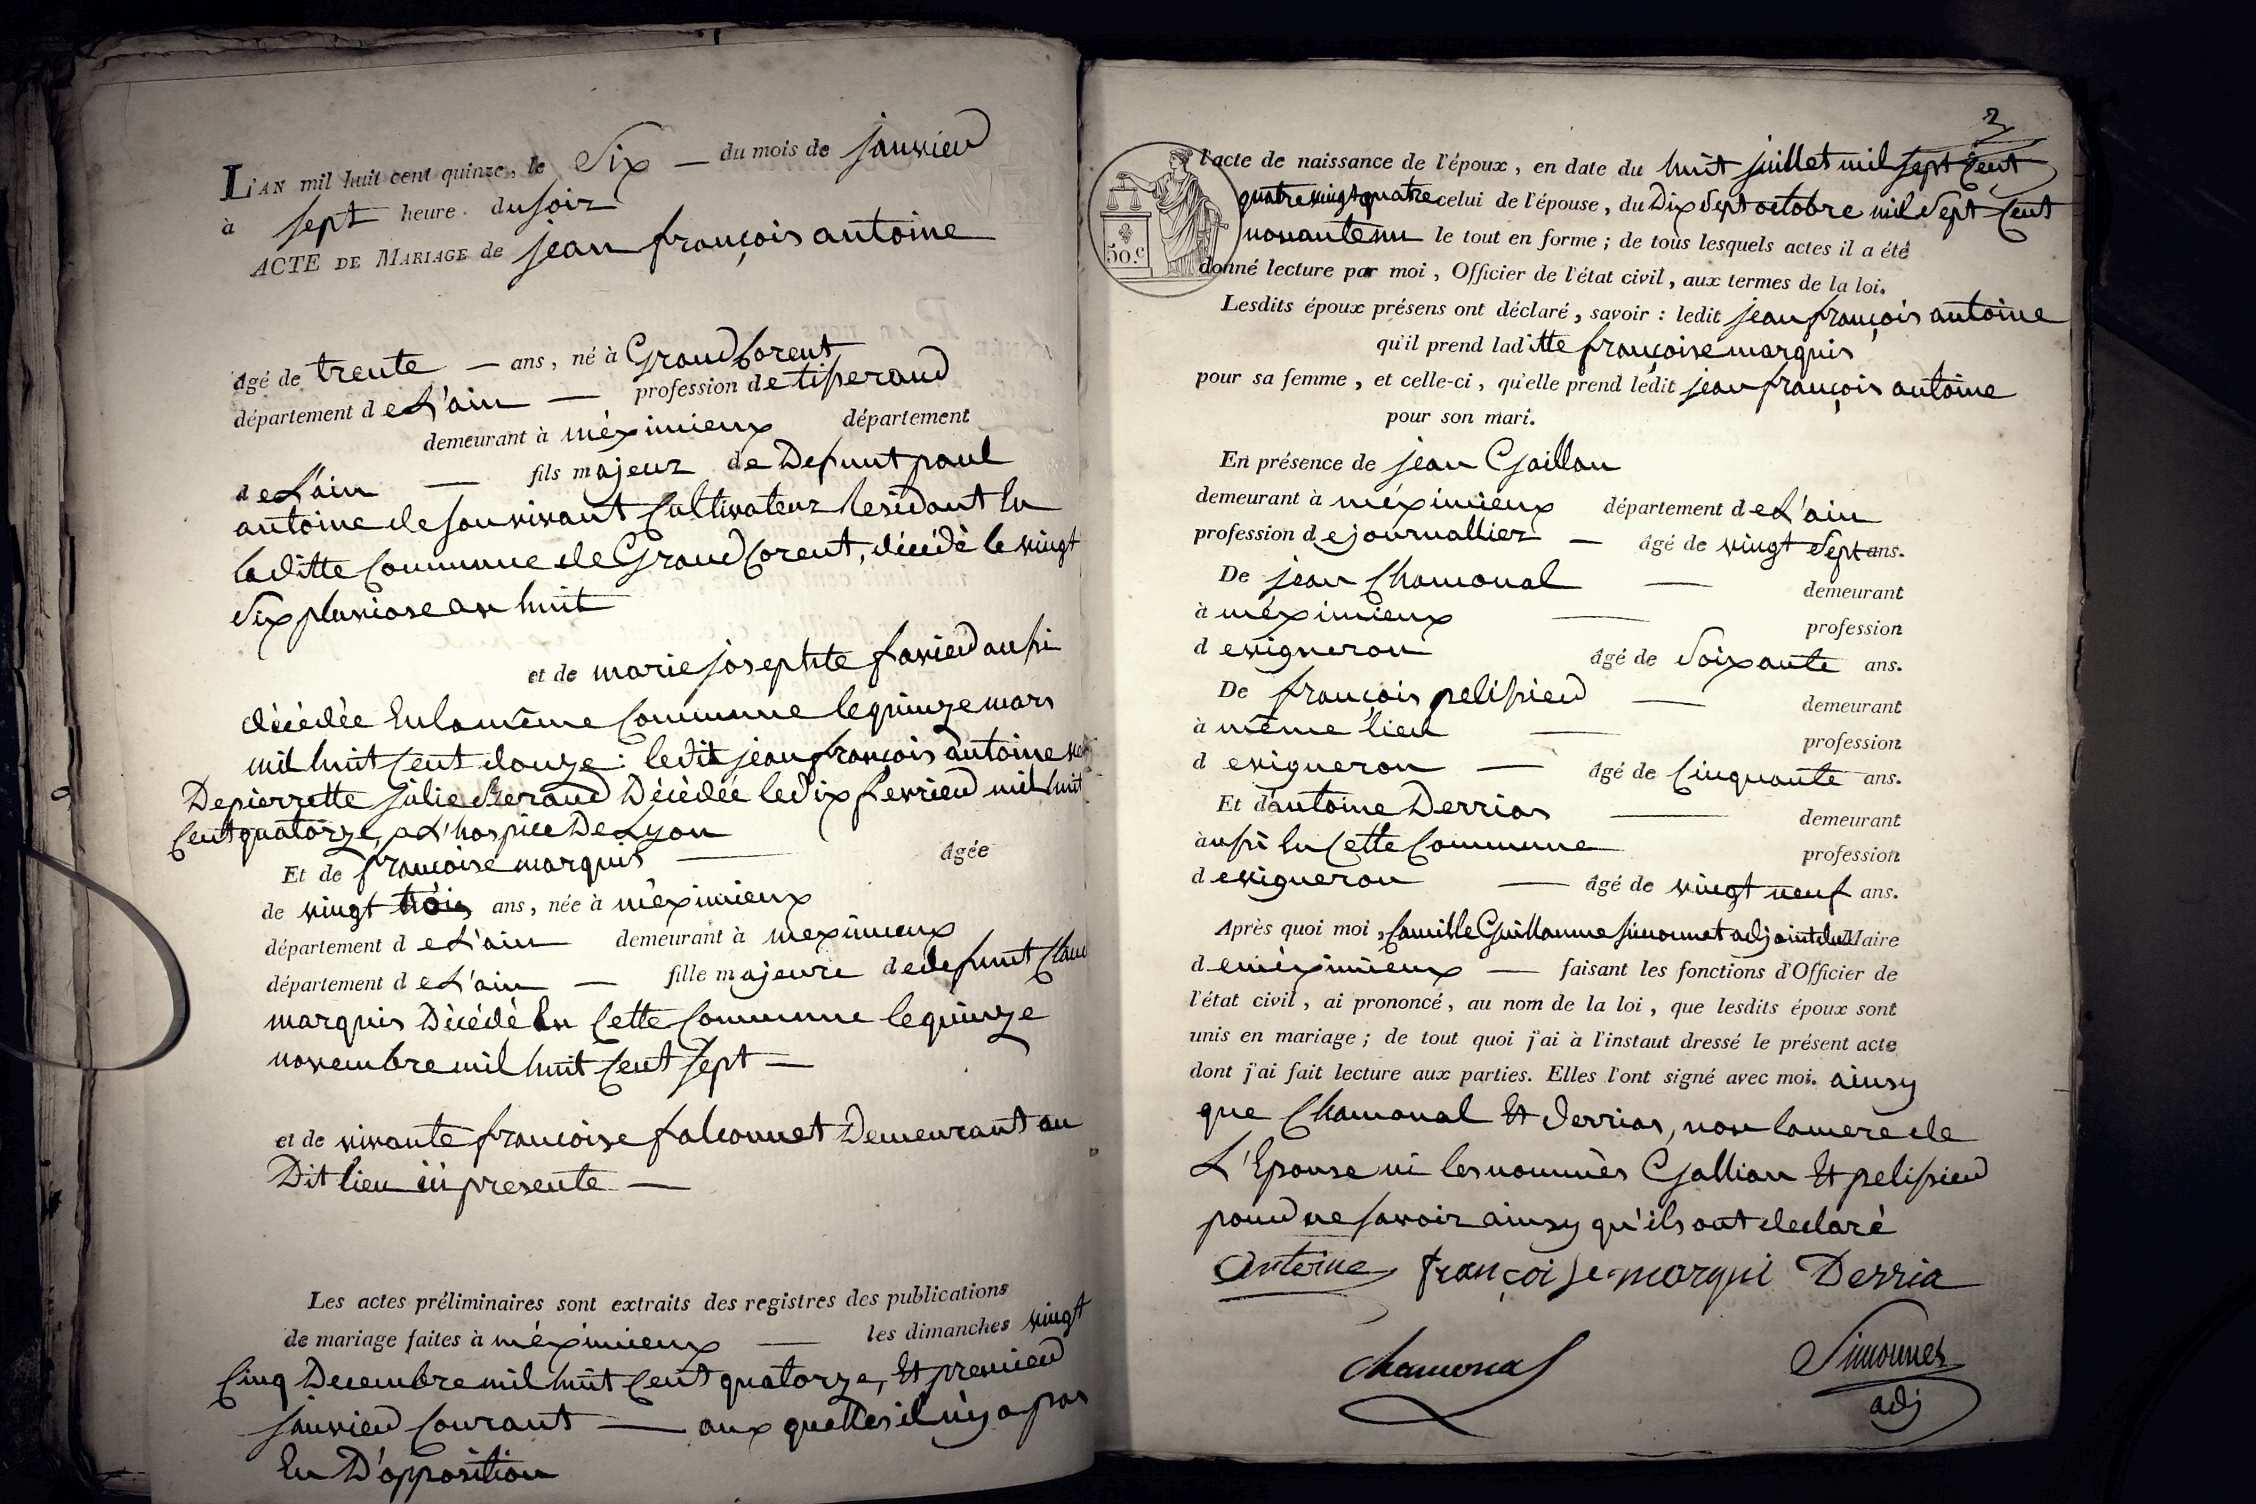 L'AN mil huit cent quinze, le Six — du mois de janvier
à sept heure. du soir
ACTE DE MARIAGE de jean françois antoine
âgé de trente — ans, né à Grand Corent
département de L'ain — profession de tisserand
demeurant à méximieux département
de L'ain — fils majeur de Defunt paul
antoine de son vivant Cultivateur Residant En
laditte Commune de Grand Corent, décédé le vingt
Six pluviose an huit
et de marie josephte favier aussi
décédée En la même Commune le quinze mars
mil huit Cent douze : ledit jean françois antoine
De pierrette julie Décédée le Dix fevrier mil huit
Cent quatorze, a L'hospice De Lyon
Et de françoise marquis — âgée
de vingt trois ans, née à méximieux
département de L'ain demeurant à meximieux
département de L'ain — fille majeure de defunt Clau
marquis Décédé En Cette Commune le quinze
novembre mil huit Cent Sept —
et de vivante françoise falconnet Demeurant au
Dit lieu ici presente —
Les actes préliminaires sont extraits des registres des publications
de mariage faites à méximieux — les dimanches vingt
Cinq Decembre mil huit Cent quatorze, Et premier
janvier Courant — aux quelles il n'y a pas
Eu D'opposition
2
50.c
l'acte de naissance de l'époux, en date du huit juillet mil sept Cent
quatre vingt quatre celui de l'épouse, du Dix Sept octobre mil Sept Cent
nonante un le tout en forme ; de tous lesquels actes il a été
donné lecture par moi, Officier de l'état civil, aux termes de la loi.
Lesdits époux présens ont déclaré, savoir : ledit jean françois antoine
qu'il prend laditte françoise marquis
pour sa femme, et celle-ci, qu'elle prend lédit jean françois antoine
pour son mari.
En présence de jean Gaillan
demeurant à méximieux département de L'ain
profession de journallier — âgé de vingt Sept ans.
De jean Chamonal — demeurant
à méximieux — profession
de vigneron âgé de Soixante ans.
De françois pelissier — demeurant
à même lieu — profession
de vigneron — âgé de Cinquante ans.
Et d'antoine Derrias — demeurant
à aussi En Cette Commune profession
de vigneron — âgé de vingt neuf ans.
Après quoi moi, Camille Guillaume Simonnet adjoint du Maire
de méximieux — faisant les fonctions d'Officier de
l'état civil, ai prononcé, au nom de la loi, que lesdits époux sont
unis en mariage ; de tout quoi j'ai à l'instaut dressé le présent acte
dont j'ai fait lecture aux parties. Elles l'ont signé avec moi. ainsy
que Chamonal Et derrias, non la mere de
L'Epouse ni les nommés Gallian Et pelissier
pour ne savoir ainsy qu'ils ont declaré
Antoine françoise marqui Derria
Chamonal Simonnet
adj